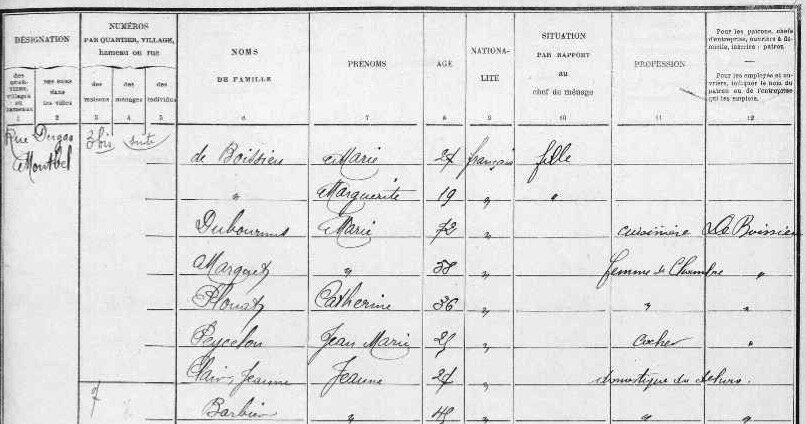 DÉSIGNATION
NUMÉROS
PAR QUARTIER, VILLAGE, hameau ou rue
NOMS DE FAMILLE
PRÉNOMS
AGE
NATIONALITÉ
SITUATION PAR RAPPORT au chef de ménage
PROFESSION
Pour les patrons, chefs d'entreprise, ouvriers à domicile, inscrire : patron.
Pour les employés et ouvriers, indiquer le nom du patron ou de l'entreprise qui les emploie.
des quartiers, villages et hameaux
des rues dans les villes
des maisons
des ménages
des individus
1 2 3 4 5 6 7 8 9 10 11 12
Rue Dugas Montbel 3 bis suite
de Boissieu Marie 27 français fille
" Marguerite 19 " "
Marie 72 " cuisinière De Boissieu
" 58 " femme de Chambre "
Catherine 36 " " "
Peycelon Jean Marie 25 " cocher "
Jeanne Jeanne 27 " domestique du dehors.
7 Barbier " 45 " " "